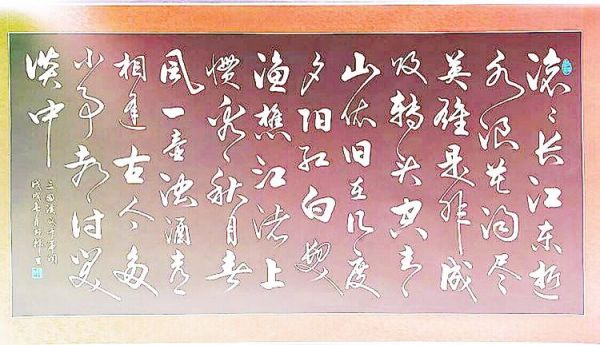 滚〻长江东逝
水浪花淘尽
英雄是非成
败转头空青
山依旧在几度
夕阳红白发
渔樵江渚上
惯看秋月春
风一壶浊酒喜
相逢古今多
少事都付笑
谈中
三国演义开篇词
戊戌年